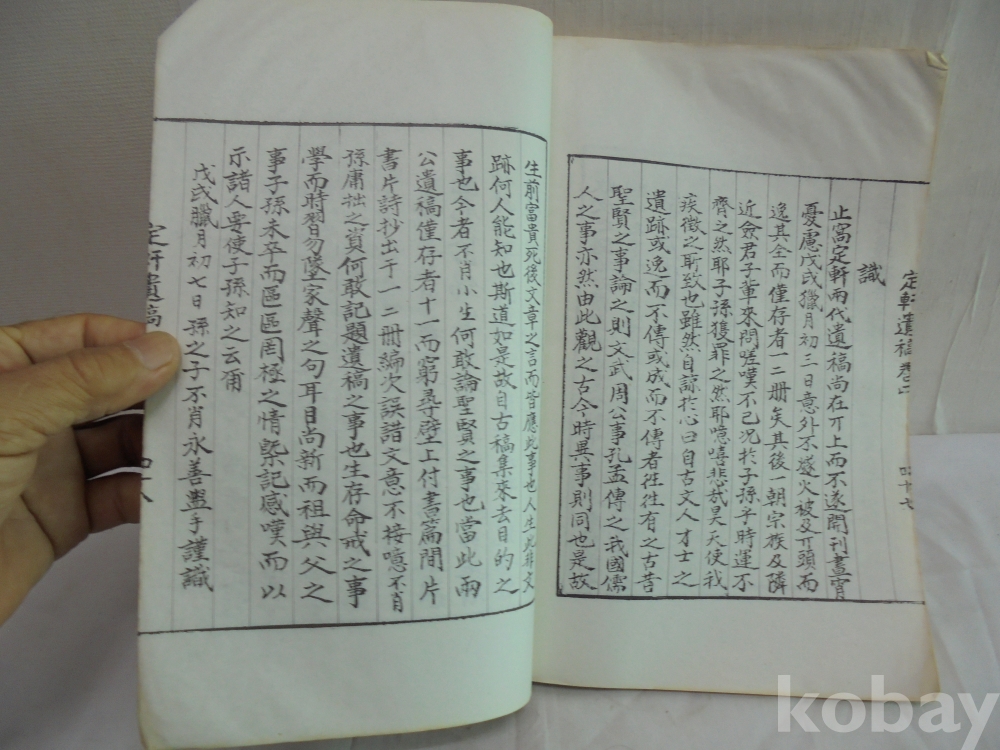 定軒遺稿卷二
四十七
識
止窩定軒兩代遺稿尚在丌上而不遂開刊晝宵
憂慮戊戌臘月初三日意外不燧火被及丌頭而
逸其全而僅存者一二冊矣其後一朝宗族及隣
近僉君子輩來問嗟嘆不已况於子孫乎時運不
齊之然耶子孫獲罪之然耶噫嘻悲哉昊天使我
疾徵之斯致也雖然自諒於心曰自古文人才士之
遺跡或逸而不傳或成而不傳者徃徃有之古昔
聖賢之事論之則文武周公事孔孟傳之我國儒
人之事亦然由此觀之古今時異事則同也是故
生前富貴死後文章之言而皆應此事也人生此非文
跡何人能知也斯道如是故自古稿集來去目的之
事也今者不肖小生何敢論聖賢之事也當此兩
公遺稿僅存者十一而窮尋壁上付書篇間片
書片詩抄出于一二冊編次誤錯文意不接噫不肖
孫庸拙之質何敢記題遺稿之事也生存命戒之事
學而時習勿墜家聲之句耳目尚新而祖與父之
事子孫未卒而區區罔極之情槩記感嘆而以
示諸人要使子孫知之云爾
戊戌臘月初七日孫之子不肖永善盥手謹識
定軒遺稿
四十八
kobay